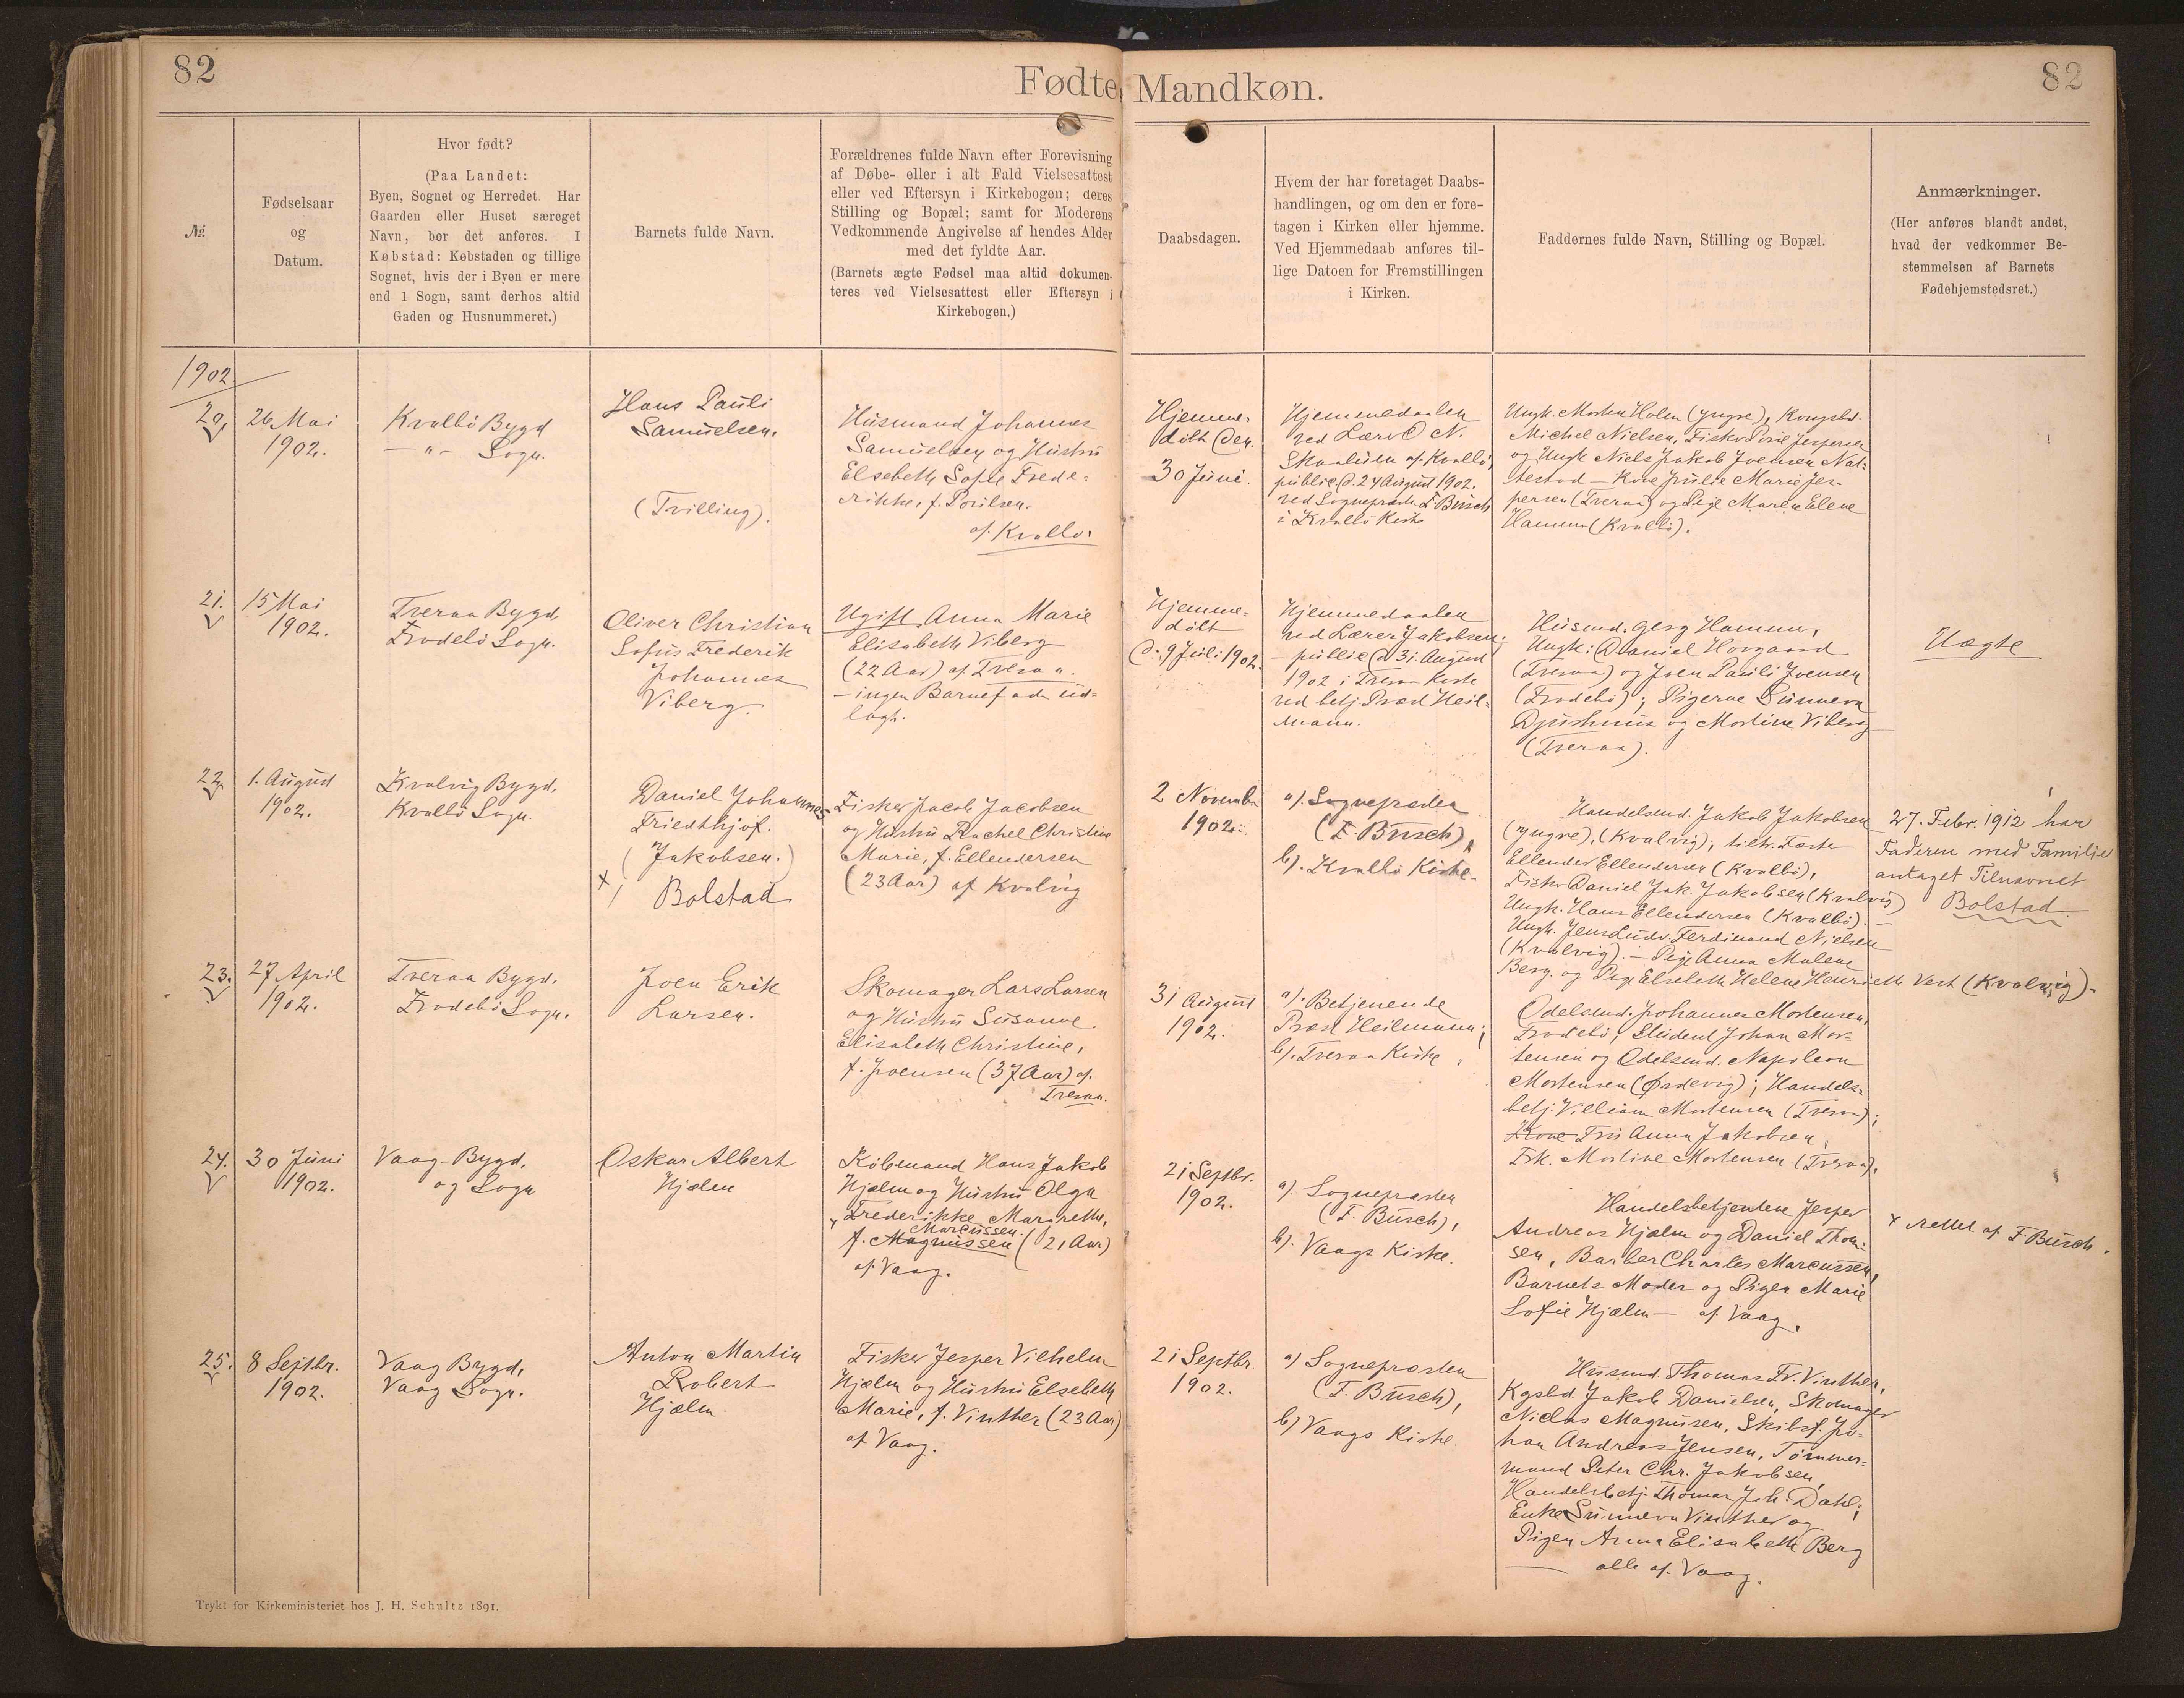 82
Fødte Mandkøn.
82
№.
Fødselsaar
og
Datum.
Hvor født?
(Paa Landet:
Byen, Sognet og Herredet. Har
Gaarden eller Huset særeget
Navn, bør det anføres. I
Købstad: Købstaden og tillige
Sognet, hvis der i Byen er mere
end 1 Sogn, samt derhos altid
Gaden og Husnummeret.)
Barnets fulde Navn.
Forældrenes fulde Navn efter Forevisning
af Døbe- eller i alt Fald Vielsesattest
eller ved Eftersyn i Kirkebogen; deres
Stilling og Bopæl; samt for Moderens
Vedkommende Angivelse af hendes Alder
med det fyldte Aar.
(Barnets ægte Fødsel maa altid dokumen-
teres ved Vielsesattest eller Eftersyn i
Kirkebogen.)
Daabsdagen.
Hvem der har foretaget Daabs-
handlingen, og om den er fore-
tagen i Kirken eller hjemme.
Ved Hjemmedaab anføres til-
lige Datoen for Fremstillingen
i Kirken.
Faddernes fulde Navn, Stilling og Bopæl.
Anmærkninger.
(Her anføres blandt andet,
hvad der vedkommer Be-
stemmelsen af Barnets
Fødehjemstedsret.)
1902
20.
26 Mai
1902.
Kvalbö Bygd
— " — Sogn.
Hans Pauli
Samuelsen.
(Tvilling).
Husmand Johannes
Samuelsen og Hustru
Elsebeth Sofie Frede-
rikke, f. Poulsen.
af Kvalbö.
Hjemme-
döbt den
30 Juni.
Hjemmedaaben
ved Lærer D N.
Skaalum af Kvalbö,
public. d. 24 August 1902.
ved Sognepræsten F. Busch
i Kvalbö Kirke
Ungk. Morten Holm (yngre), Kongsbd.
Michel Nielsen, Fisker Poul Jespersen
og Ungk Niels Jakob Joensen Nal-
bestad — Kone Julie Marie Jes-
persen (Tveraa) og Pige Maren Elene
Hammer (Kvalbö).
21.
15 Mai
1902.
Tveraa Bygd,
Frodebö Sogn.
Oliver Christian
Sofus Frederik
Johannes
Viberg.
Ugift Anna Marie
Elisabeth Viberg
(22 Aar) af Tveraa.
— ingen Barnefader ud-
lagt.
Hjemme-
döbt
d. 9 Juli 1902.
Hjemmedaaben
ved Lærer Jakobsen;
— public. d 31 August
1902 i Tveraa Kirke
ved betj. Præst Heil-
mann.
Husmd. Georg Hammer,
Ungk: Daniel Hovgaard
(Tveraa) og Joen Pauli Joensen
(Frodebö); Pigerne Sunneva
Djurhuus og Mortine Viberg
(Tveraa).
Uægte
22.
1. August
1902.
Kvalvig Bygd,
Kvalbö Sogn.
Daniel Johannes
Friedthjof.
(Jakobsen.)
x / Bolstad
Fisker Jacob Jacobsen
og Hustru Rachel Christine
Marie, f. Ellendersen
(23 Aar) af Kvalvig
2 November
1902.
a). Sognepræsten
(F. Busch),
b). Kvalbö Kirke.
Handelsmd. Jakob Jakobsen
(yngre), (Kvalvig);
Ellender Ellendersen (Kvalbö),
Fisker Daniel Jak. Jakobsen (Kvalvig)
Ungk. Hans Ellendersen (Kvalbö).
Ungk. Jens Ludv. Ferdinand Nielsen
(Kvalvig). — Pige Anna Malene
Berg. og Pige Elsebeth Helene Henrieth Vest (Kvalvig).
27. Febr. 1912 har
Faderen med Familie
antaget Tilnavnet
Bolstad
23.
27 April
1902.
Tveraa Bygd.
Frodebö Sogn.
Joen Erik
Larsen.
Skomager Lars Larsen
og Hustru Susanne.
Elisabeth Christine,
f. Joensen (37 Aar) af
Tveraa.
31 August
1902.
a). Betjenende
Præst Heilmann;
b). Tveraa Kirke.
Odelsmd. Johannes Mortensen,
Frodebö, Student Johan Mor-
tensen og Odelsmd. Napoleon
Mortensen (Ørdevig); Handels-
betj. Villiam Mortensen (Tveraa);
Kone Fru Anna Jakobsen,
Frk. Mortine Mortensen (Tveraa).
24.
30 Juni
1902.
Vaag-Bygd,
og Sogn
Oskar Albert
Hjelm
Köbmand Hans Jakob
Hjelm og Hustru Olga
Frederikke Margrethe,
Marcussen
x f. Magnussen (21 Aar)
af Vaag.
21 Septbr.
1902.
a). Sognepræsten
(F. Busch),
b). Vaags Kirke.
Handelsbetjentene Jesper
Andreas Hjelm og Daniel Thom-
sen, Barber Charles Marcussen,
Barnets Moder og Pigen Marie
Sofie Hjelm — af Vaag.
x rettet af F. Busch.
25.
8 Septbr.
1902.
Vaag Bygd,
Vaag Sogn.
Anton Martin
Robert
Hjelm
Fisker Jesper Vilhelm
Hjelm og Hustru Elsebeth
Marie, f. Vinther (23 Aar)
af Vaag.
21 Septbr.
1902.
a) Sognepræsten
(F. Busch),
b) Vaags Kirke
Husmd. Thomas Fr. Vinther,
Kgsbd. Jakob Danielsen, Skomager
Niclas Magnusen, Skibsf. Jo-
han Andreas Jensen, Tömmer-
mand Peter Chr. Jakobsen,
Handelsbetj. Thomas Joh. Dahl;
Enke Sunneva Vinther og
Pigen Anna Elisabeth Berg
— alle af Vaag.
Trykt for Kirkeministeriet hos J. H. Schultz 1891.